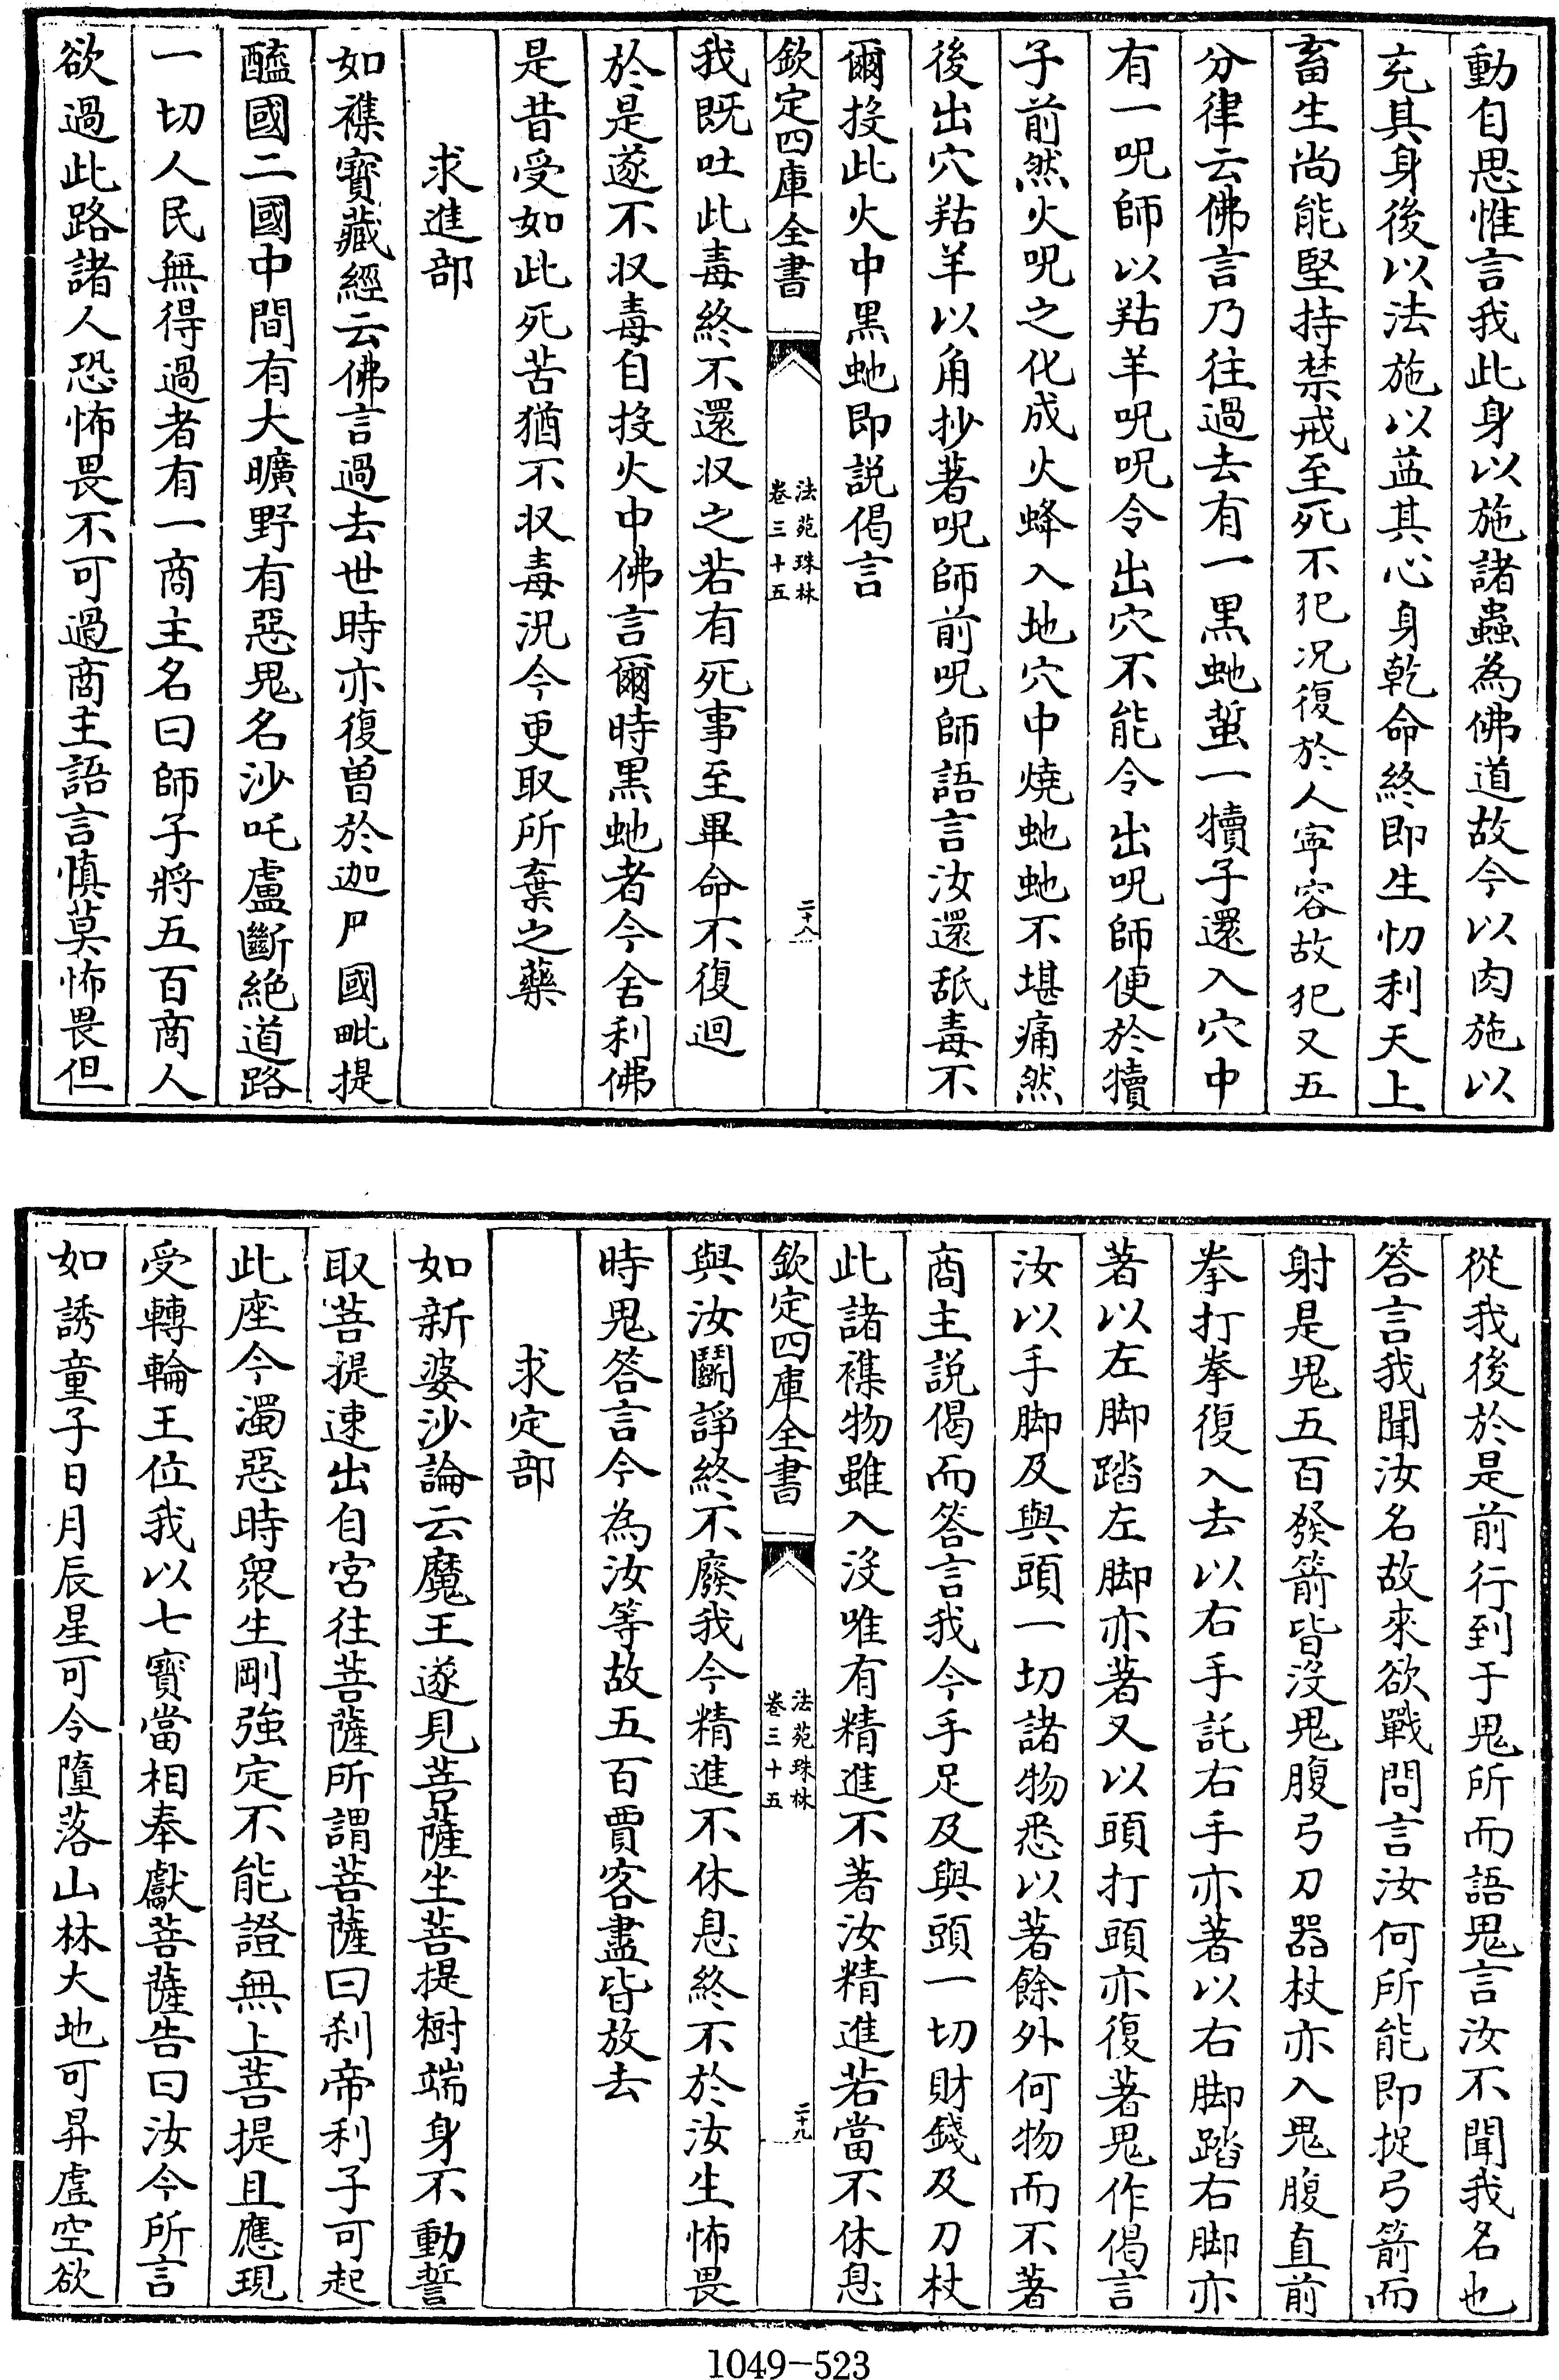 動自思惟言我此身以施諸蟲為佛道故今以肉施以
充其身後以法施以益其心身乾命終即生忉利天上
畜生尚能堅持禁戒至死不犯况復於人寧容故犯又五
分律云佛言乃往過去有一黒虵蜇一犢子還入穴中
有一呪師以羖羊呪呪令出穴不能令出呪師便於犢
子前然火呪之化成火蜂入地穴中燒虵虵不堪痛然
後出穴羖羊以角抄著呪師前呪師語言汝還舐毒不
爾投此火中黒虵即説偈言
欽定四庫全書
法苑珠林
卷三十五
二十八
我既吐此毒終不還収之若有死事至畢命不復迴
於是遂不収毒自投火中佛言爾時黒虵者今舍利佛
是昔受如此死苦猶不収毒況今更取所棄之藥
求進部
如襍寳藏經云佛言過去世時亦復曽於迦尸國毗提
醯國二國中間有大曠野有惡鬼名沙吒盧斷絶道路
一切人民無得過者有一商主名曰師子將五百商人
欲過此路諸人恐怖畏不可過商主語言慎莫怖畏但
從我後於是前行到于鬼所而語鬼言汝不聞我名也
答言我聞汝名故來欲戰問言汝何所能即捉弓箭而
射是鬼五百發箭皆沒鬼腹弓刀器杖亦入鬼腹直前
拳打拳復入去以右手託右手亦著以右脚踏右脚亦
著以左脚踏左脚亦著又以頭打頭亦復著鬼作偈言
汝以手脚及與頭一切諸物悉以著餘外何物而不著
商主説偈而答言我今手足及與頭一切財錢及刀杖
此諸襍物雖入沒唯有精進不著汝精進若當不休息
欽定四庫全書
法苑珠林
卷三十五
二十九
與汝鬭諍終不廢我今精進不休息終不於汝生怖畏
時鬼答言今為汝等故五百賈客盡皆放去
求定部
如新婆沙論云魔王遂見菩薩坐菩提樹端身不動誓
取菩提速出自宮往菩薩所謂菩薩曰刹帝利子可起
此座今濁惡時衆生剛強定不能證無上菩提且應現
受轉輪王位我以七寳當相奉獻菩薩告曰汝今所言
如誘童子日月辰星可令墮落山林大地可昇虛空欲
1049-523